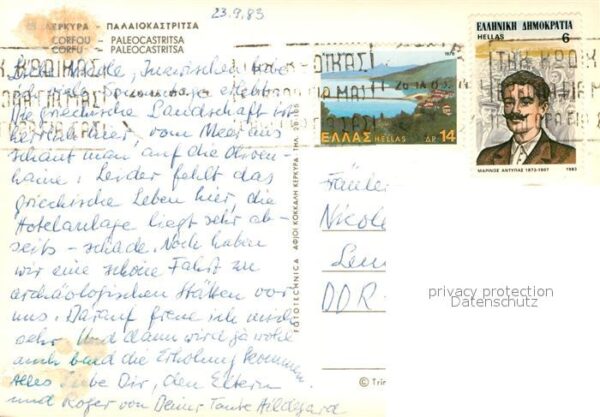 23.9.83
ΚΕΡΚΥΡΑ - ΠΑΛΑΙΟΚΑΣΤΡΙΤΣΑ
CORFOU - PALEOCASTRITSA
CORFU - PALEOCASTRITSA
Liebe Nicole, Inzwischen habe
ich viel Sonne
Die griechische Landschaft ist
herrlich hier, vom Meer aus
schaut man auf die Oliven-
haine. Leider fehlt das
griechische Leben hier, die
Hotelanlage liegt sehr ab-
seits - schade. Noch haben
wir eine schöne Fahrt zu
archäologischen Stätten vor
uns. Darauf freue ich mich
sehr. Und dann wird ja wohl
auch bald die Erholung kommen.
Alles Liebe Dir, den Eltern
und Roger von Deiner Tante Hildegard
FOTOTECHNICA ΑΦΙΟΙ ΚΟΚΚΑΛΗ ΚΕΡΚΥΡΑ ΤΗΛ.
1979
ΕΛΛΑΣ HELLAS ΔΡ 14
ΕΛΛΗΝΙΚΗ ΔΗΜΟΚΡΑΤΙΑ
HELLAS 6
ΜΑΡΙΝΟΣ ΑΝΤΥΠΑΣ 1873-1907 1983
Nicole
DDR-
privacy protection
Datenschutz